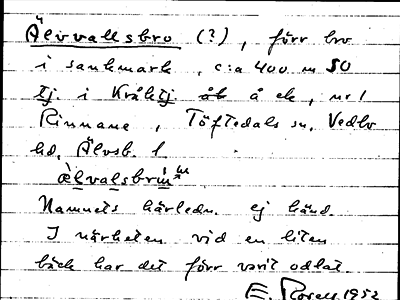 Älvvallsbro (?), förr bro
i sankmark, c:a 400 m SO
tj. i Kråktj. å ek, nr 1
Rinnane, Töftedals sn, Vedbo
hd, Älvsb. l.
ælvalsbrún
Namnets härledn. ej känd.
I närheten vid en liten
bäck har det förr varit odlat.
E. Rosell 1952